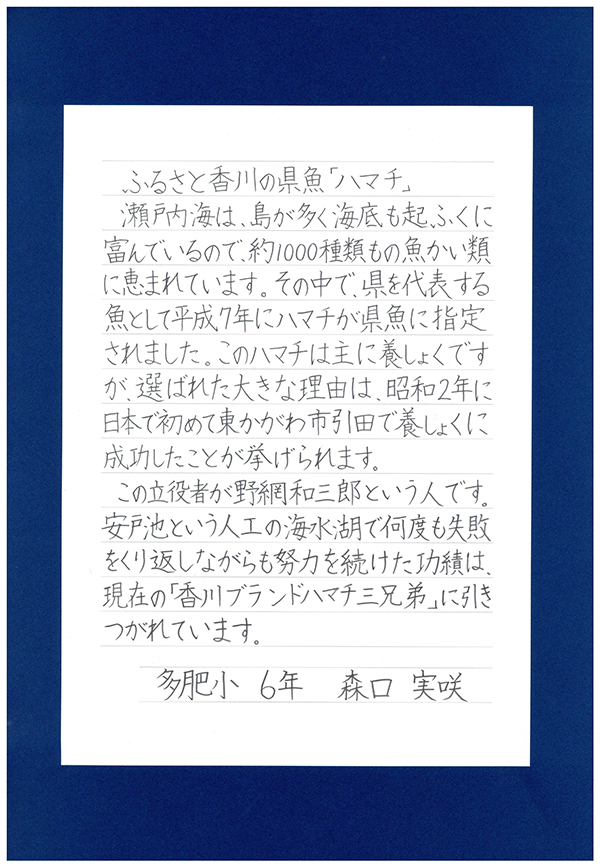 ふるさと香川の県魚「ハマチ」
瀬戸内海は、島が多く海底も起ふくに
富んでいるので、約1000種類もの魚かい類
に恵まれています。その中で、県を代表する
魚として平成7年にハマチが県魚に指定
されました。このハマチは主に養しょくです
が、選ばれた大きな理由は、昭和2年に
日本で初めて東かがわ市引田で養しょくに
成功したことが挙げられます。
この立役者が野網和三郎という人です。
安戸池という人工の海水湖で何度も失敗
をくり返しながらも努力を続けた功績は、
現在の「香川ブランドハマチ三兄弟」に引き
つがれています。
多肥小 6年 森口 実咲